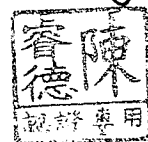 陳
睿德
認證專用